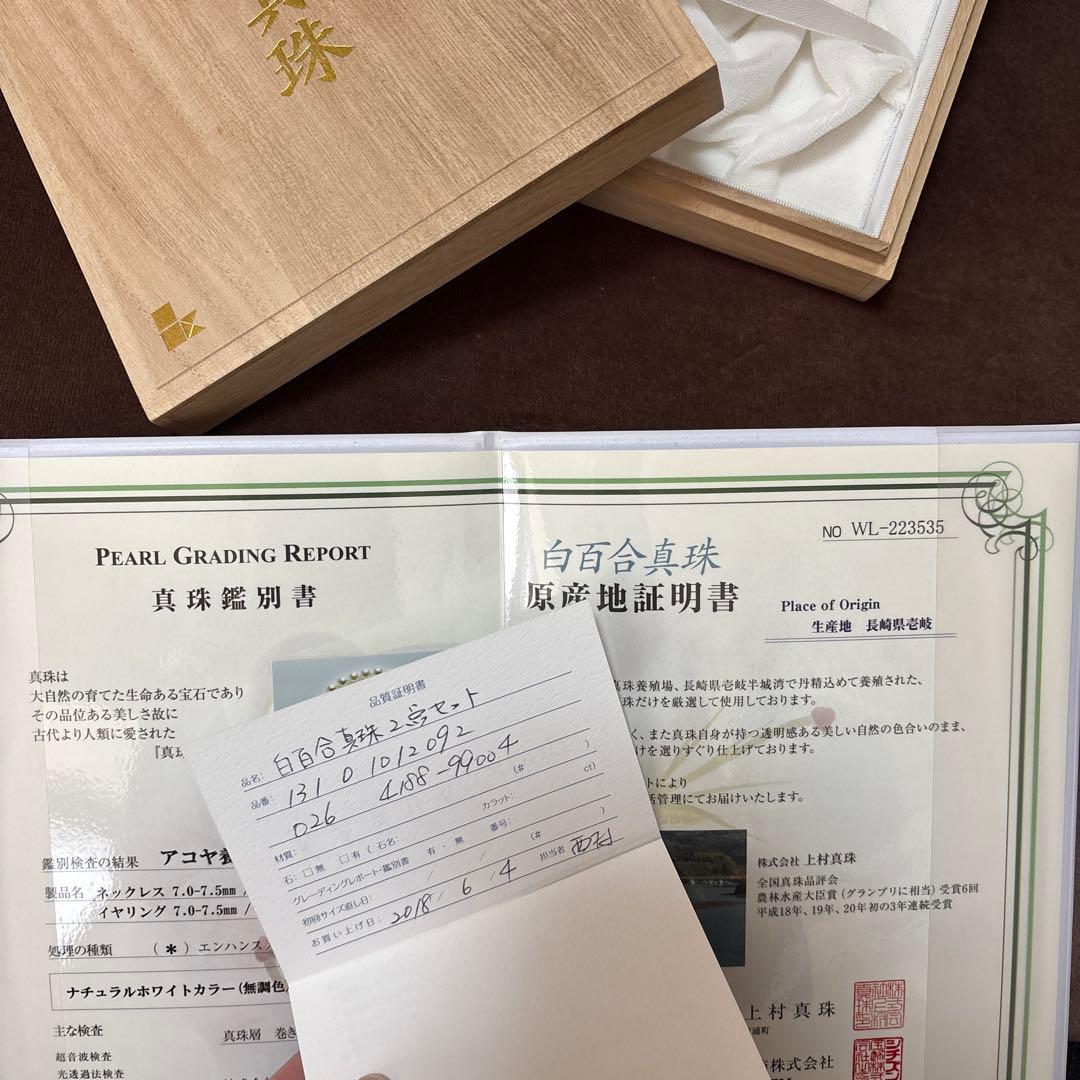 真珠
NO WL-223535
PEARL GRADING REPORT
真珠鑑別書
白百合真珠
原産地証明書
Place of Origin
生産地 長崎県壱岐
真珠は
大自然の育てた生命ある宝石であり
その品位ある美しさ故に
古代より人類に愛された
『真珠
真珠養殖場、長崎県壱岐半城湾で丹精込めて養殖された、
珠だけを厳選して使用しております。
く、また真珠自身が持つ透明感ある美しい自然の色合いのまま、
けを選りすぐり仕上げております。
トにより
括管理にてお届けいたします。
品質証明書
品名: 白百合真珠2点セット
品番: 131 0 1012092
026 4188-99004
材質: (# )
石: □無 □有 (石名: カラット: ct)
グレーディングレポート・鑑別書 有・無 番号: (# )
初回サイズ直し日: / /
お買い上げ日: 2018/6/4 担当者 西村
鑑別検査の結果 アコヤ養
製品名 ネックレス 7.0-7.5mm /
イヤリング 7.0-7.5mm /
処理の種類 (*) エンハンス
ナチュラルホワイトカラー(無調色
主な検査 真珠層 巻き
超音波検査
光透過法検査
株式会社 上村真珠
全国真珠品評会
農林水産大臣賞 (グランプリに相当) 受賞6回
平成18年、19年、20年初の3年連続受賞
上村真珠
浦町
株式会社